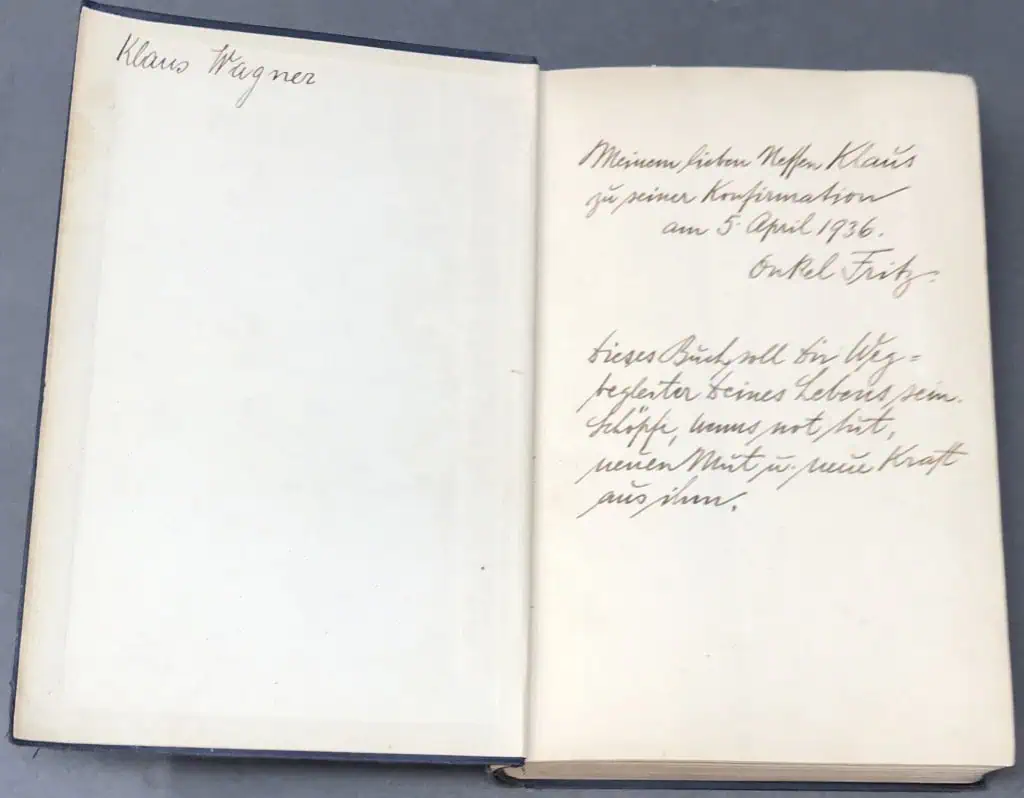 Klaus Wagner
Meinem lieben Neffen Klaus
zu seiner Konfirmation
am 5. April 1936.
Onkel Fritz.
Dieses Buch soll Dir Weg=
begleiter Deines Lebens sein.
Schöpfe, wenns not tut,
neuen Mut u. neue Kraft
aus ihm.